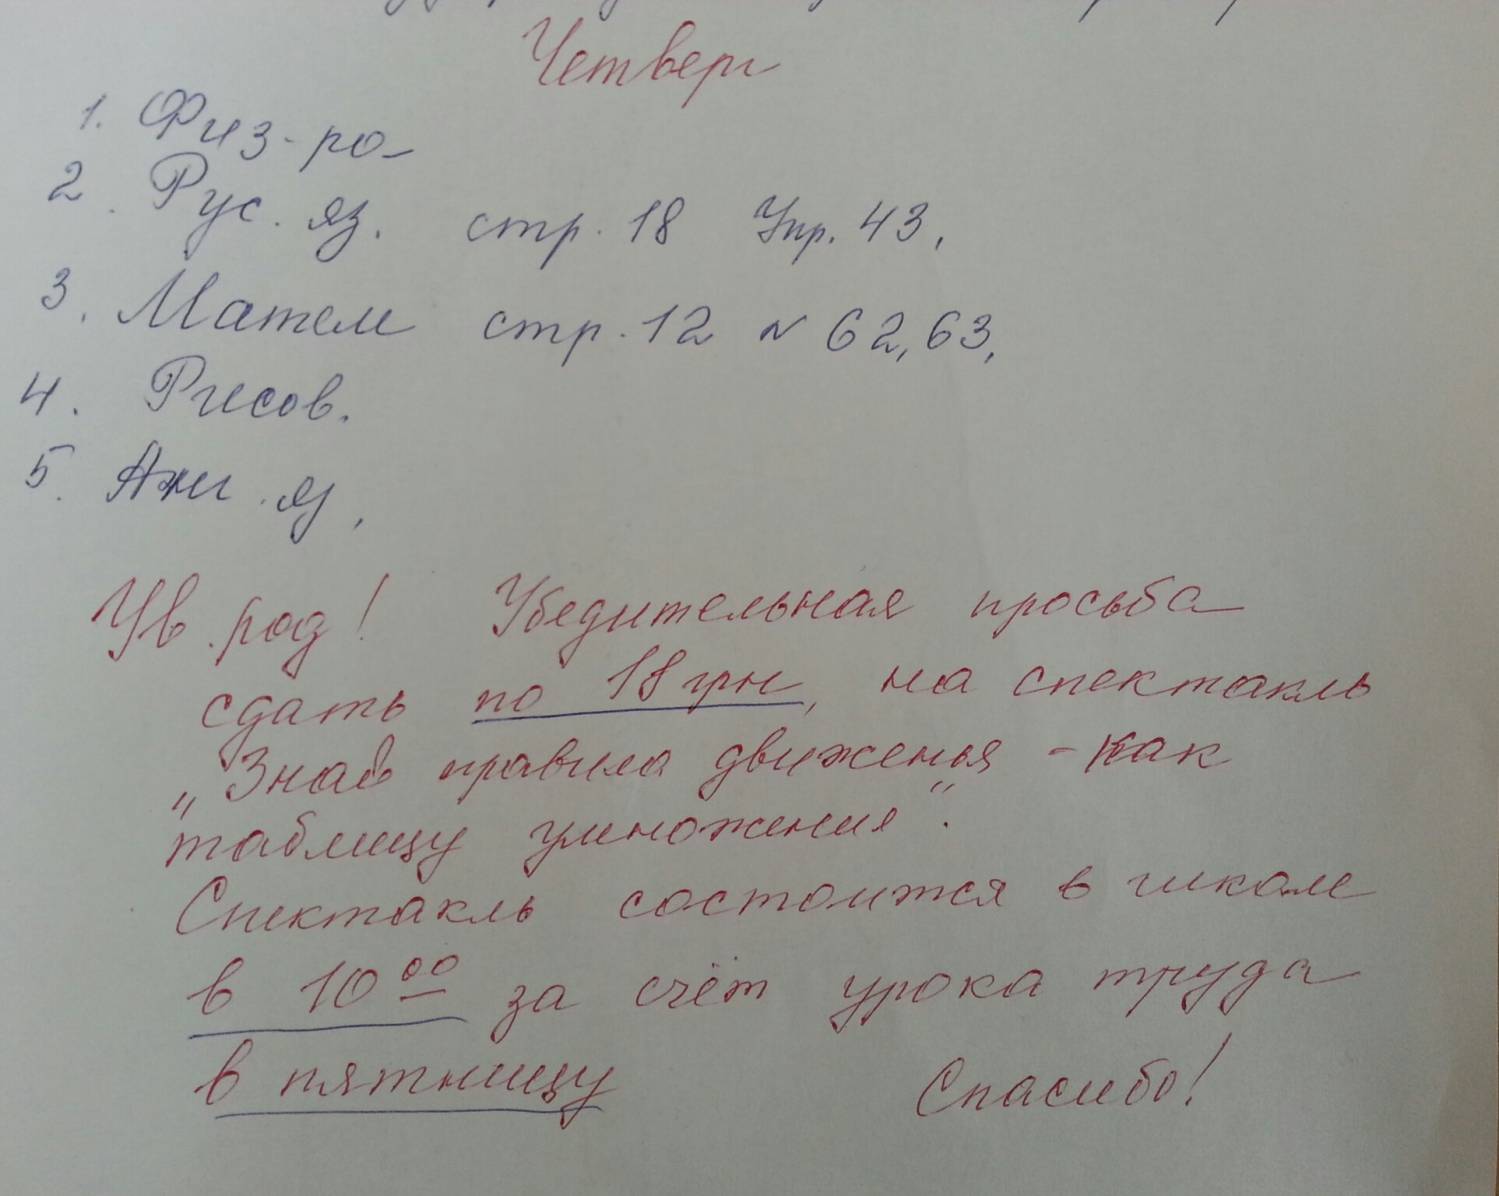 Четверг
1. Физ-ра
2. Рус. яз. стр. 18 Упр. 43.
3. Матем стр. 12 № 62, 63.
4. Рисов.
5. Анг. яз.
Ув. род! Убедительная просьба
сдать по 18 грн, на спектакль
„Знай правила движенья - как
таблицу умножения".
Спектакль состоится в школе
в 10 00 за счёт урока труда
в пятницу Спасибо!